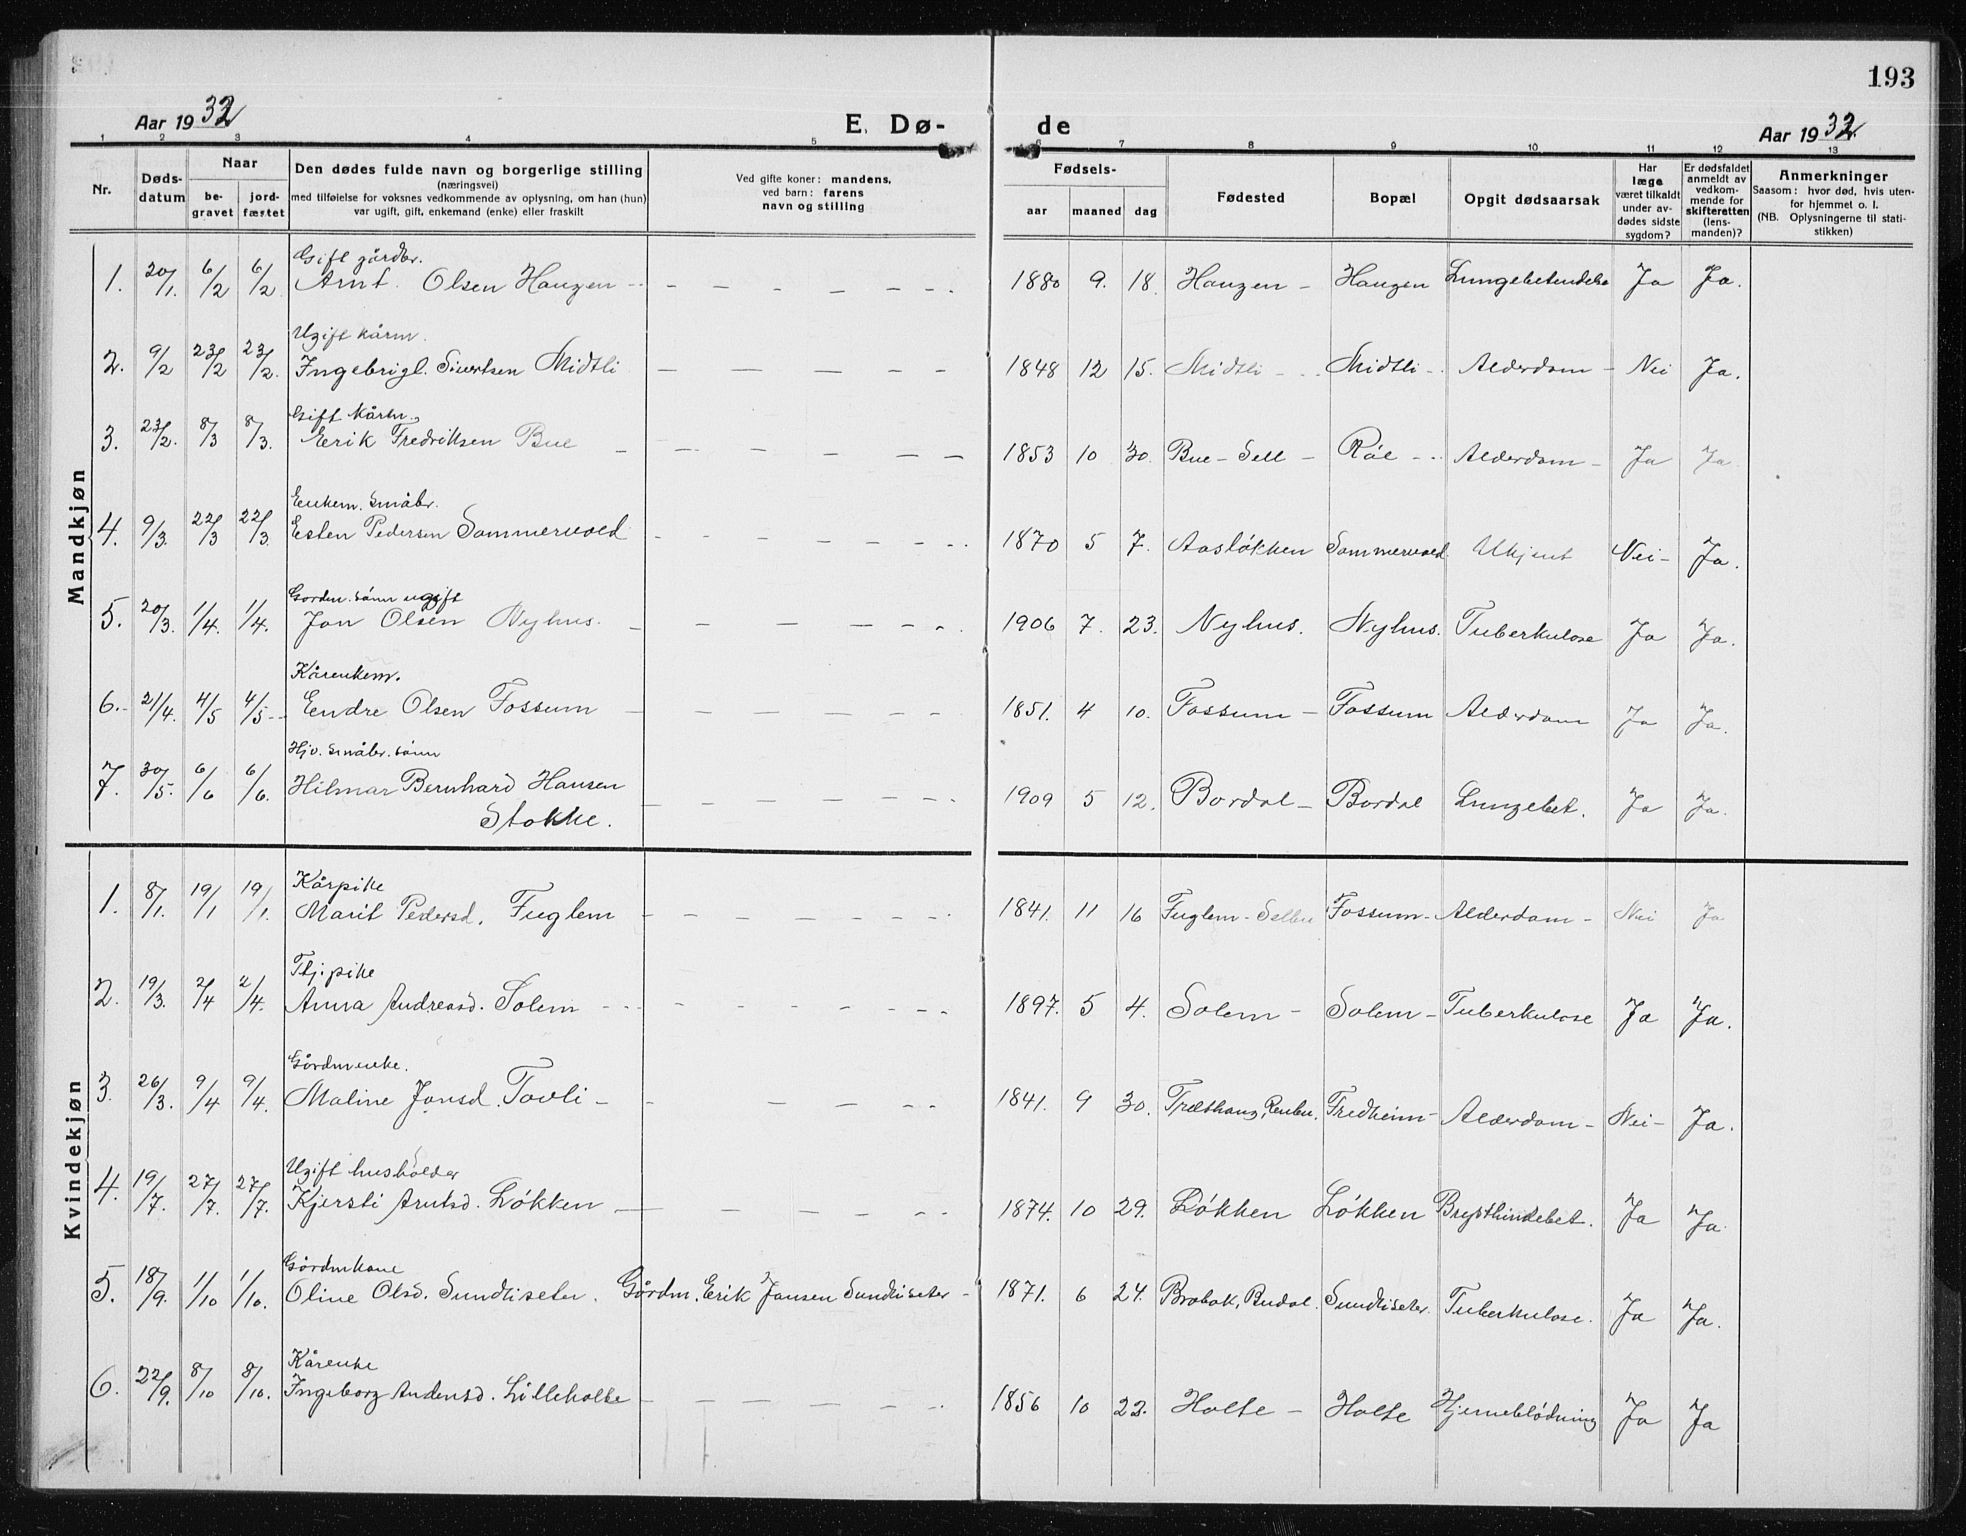 193
Aar 1932 E. Dø- de Aar 1932
1 2 3 4 5 6 7 8 9 10 11 12 13
Nr. Døds-datum Naar be-gravet jord-fæstet Den dødes fulde navn og borgerlige stilling (næringsvei) med tilføielse for voksnes vedkommende av oplysning, om han (hun) var ugift, gift, enkemand (enke) eller fraskilt Ved gifte koner: mandens, ved barn: farens navn og stilling Fødsels- aar maaned dag Fødested Bopæl Opgit dødsaarsak Har læge været tilkaldt under av-dødes sidste sygdom? Er dødsfaldet anmeldt av vedkom-mende for skifteretten (lens-manden)? Anmerkninger Saasom: hvor død, hvis uten-for hjemmet o. l. (NB. Oplysningerne til stati-stikken)
Mandkjøn
Gift gårdbr.
1. 20/1. 6/2 6/2 Arnt Olsen Haugen 1880 9. 18. Haugen Haugen Lungebetendelse Ja Ja.
Ugift kårm.
2. 9/2 23/2 23/2. Ingebrigt Sivertsen Midtli 1848 12 15. Midtli Midtli Alderdom Nei Ja.
Gift Kårm.
3. 23/2. 8/3 8/3. Erik Fredriksen Bue 1853 10 30. Bue - Sell Råe Alderdom Ja Ja
Enkem. småbr.
4. 9/3. 22/3 22/3. Esten Pedersen Sommervold 1870 5 7. Aasløkken Sommervold Ukjent Nei Ja.
Gårdm. sønn ugift
5. 20/3. 1/4. 1/4. Jon Olsen Nyhus. 1906 7. 23. Nyhus. Nyhus. Tuberkulose Ja Ja.
Kårenkem.
6. 21/4. 4/5 4/5 Endre Olsen Fossum 1851. 4 10. Fossum Fossum Alderdom Ja Ja.
Hjv. småbr. sønn
7. 30/5. 6/6 6/6. Hilmar Bernhard Hansen 1909 5 12. Bordal Bordal Lungebet. Ja Ja.
Stokke.
Kvindekjøn
Kårpike
1. 8/1. 19/1 19/1. Marit Pedersd. Fuglem 1841. 11 16 Fuglem - Selbu Fossum Alderdom Nei Ja
Thjpike
2. 19/3. 2/4 2/4. Anna Andreasd. Solem 1897. 5 4. Solem Solem Tuberkulose Ja Ja.
Gårdmenke.
3. 26/3. 9/4 9/4. Maline Jonsd. Tovli 1841. 9 30. Renbu. Fredheim Alderdom Nei Ja.
Ugift husholder
4. 19/7. 27/7. 27/7. Kjersti Arntsd. Løkken 1874. 10 29. Løkken Løkken Brysthindebet. Ja Ja.
Gårdmkone
5. 18/9. 1/10 1/10. Oline Olsd. Sundliseter. Gårdm. Erik Jansen Sundliseter 1871. 6 24. Brobak, Budal. Sundliseter. Tuberkulose. Ja Ja.
Kårenke
6. 22/9. 8/10 8/10. Ingeborg Andersd. Lilleholte 1856 10 22. Holte Holte Hjerneblødning Ja Ja